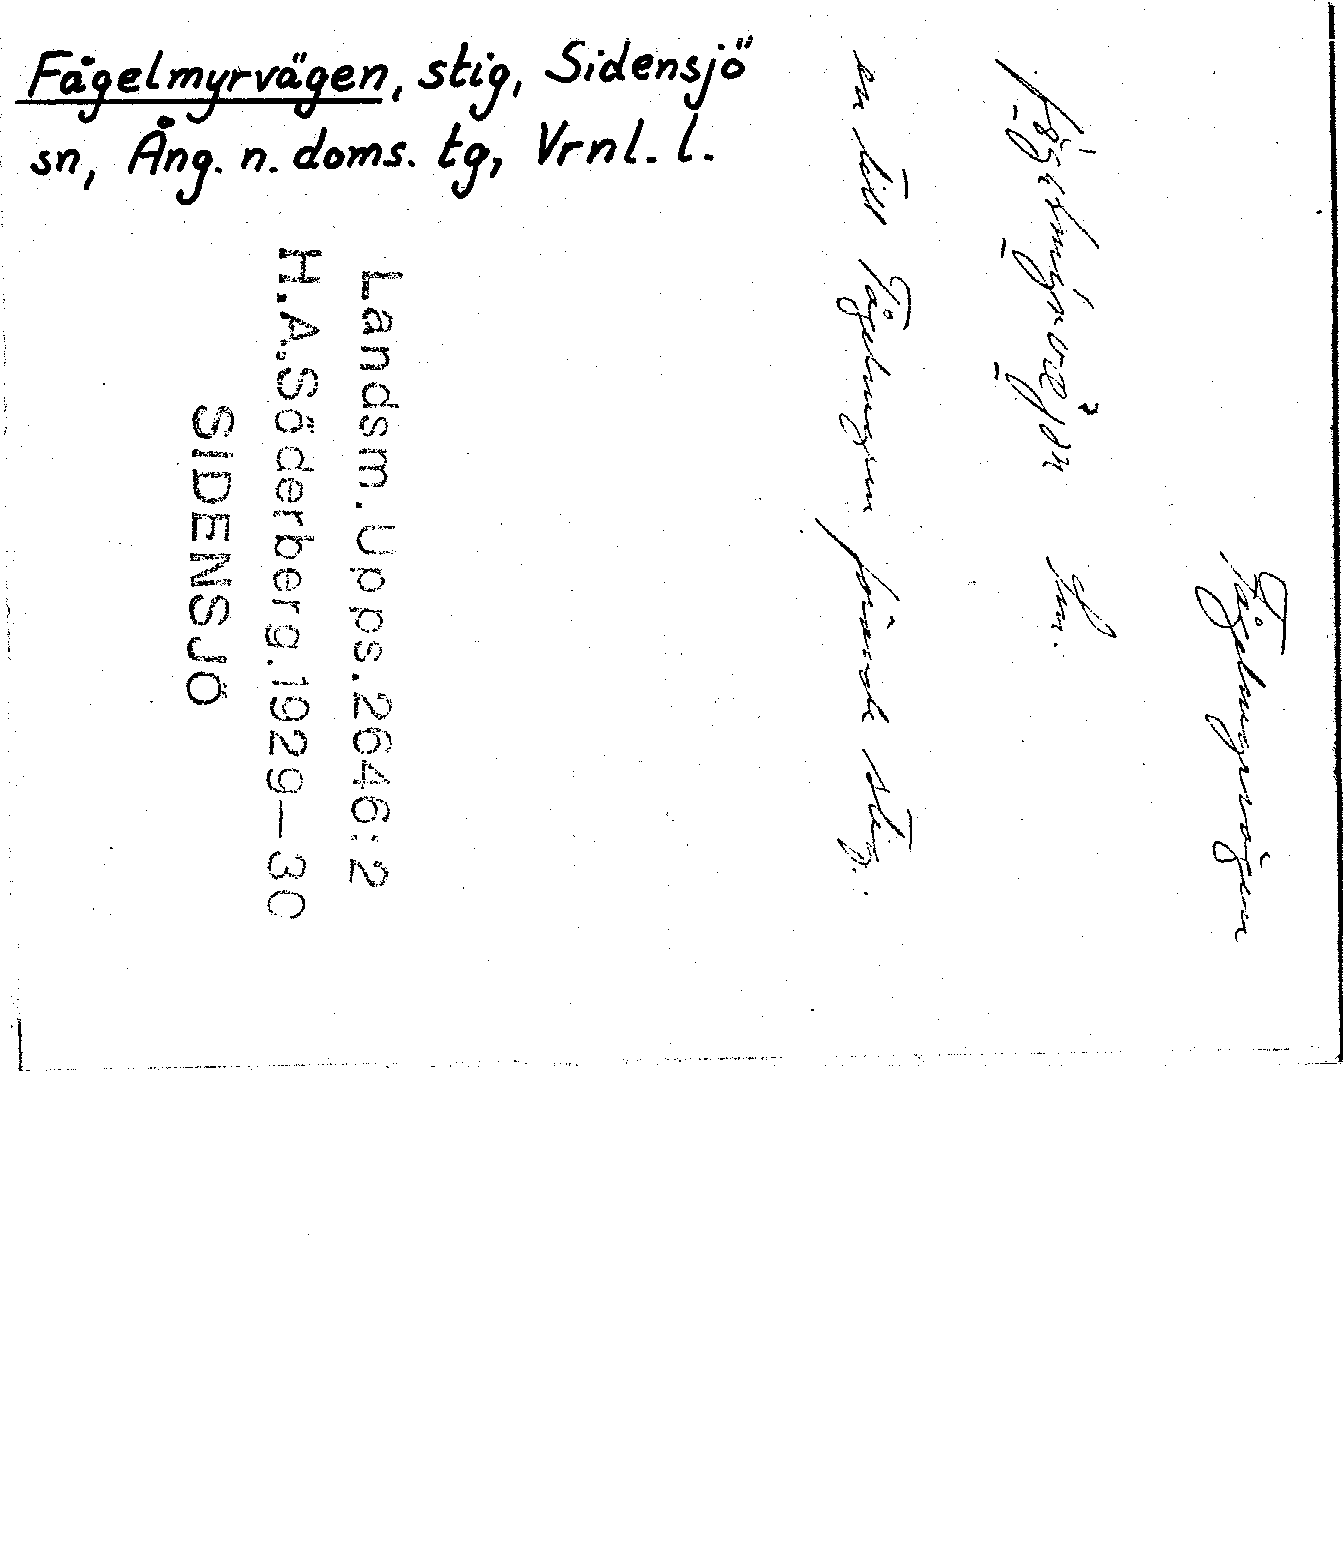 Fågelmyrvägen, stig, Sidensjö
sn, Ång. n. doms. tg, Vrnl. l.
Fågelmyrvägen
Sm.
en till Fågelmyren förande stig.
Landsm. Upps. 2646:2
H.A.Söderberg.1929-30
SIDENSJÖ